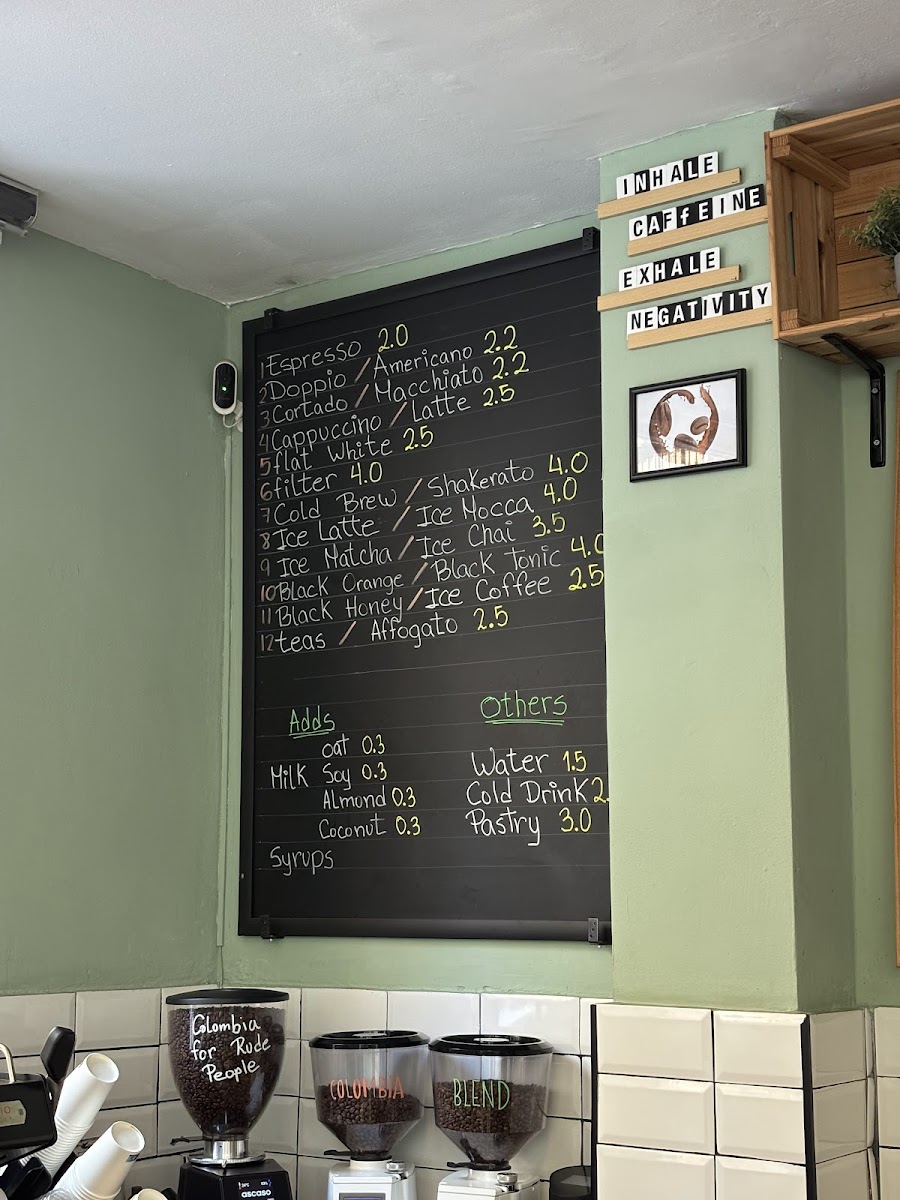 INHALE
CAFfEINE
EXHALE
NEGATIVITY
1 Espresso 2.0
2 Doppio / Americano 2.2
3 Cortado / Macchiato 2.2
4 Cappuccino / Latte 2.5
5 flat white 2.5
6 filter 4.0
7 Cold Brew / Shakerato 4.0
8 Ice Latte / Ice Mocca 4.0
9 Ice Matcha / Ice Chai 3.5
10 Black Orange / Black Tonic 4.0
11 Black Honey / Ice Coffee 2.5
12 teas / Affogato 2.5
Adds
oat 0.3
Milk Soy 0.3
Almond 0.3
Coconut 0.3
Syrups
Others
Water 1.5
Cold Drink 2.
Pastry 3.0
Colombia
for Rude
People
COLOMBIA
BLEND
ascaso